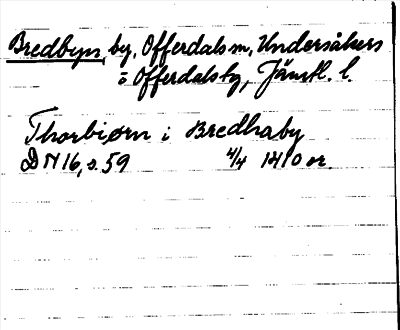 Bredbyn, by, Offerdals sn, Undersåkers
o Offerdals tg, Jämtl. l.
Thorbiørn i Bredhaby
DN 16, s. 59 4/4 1410 or.